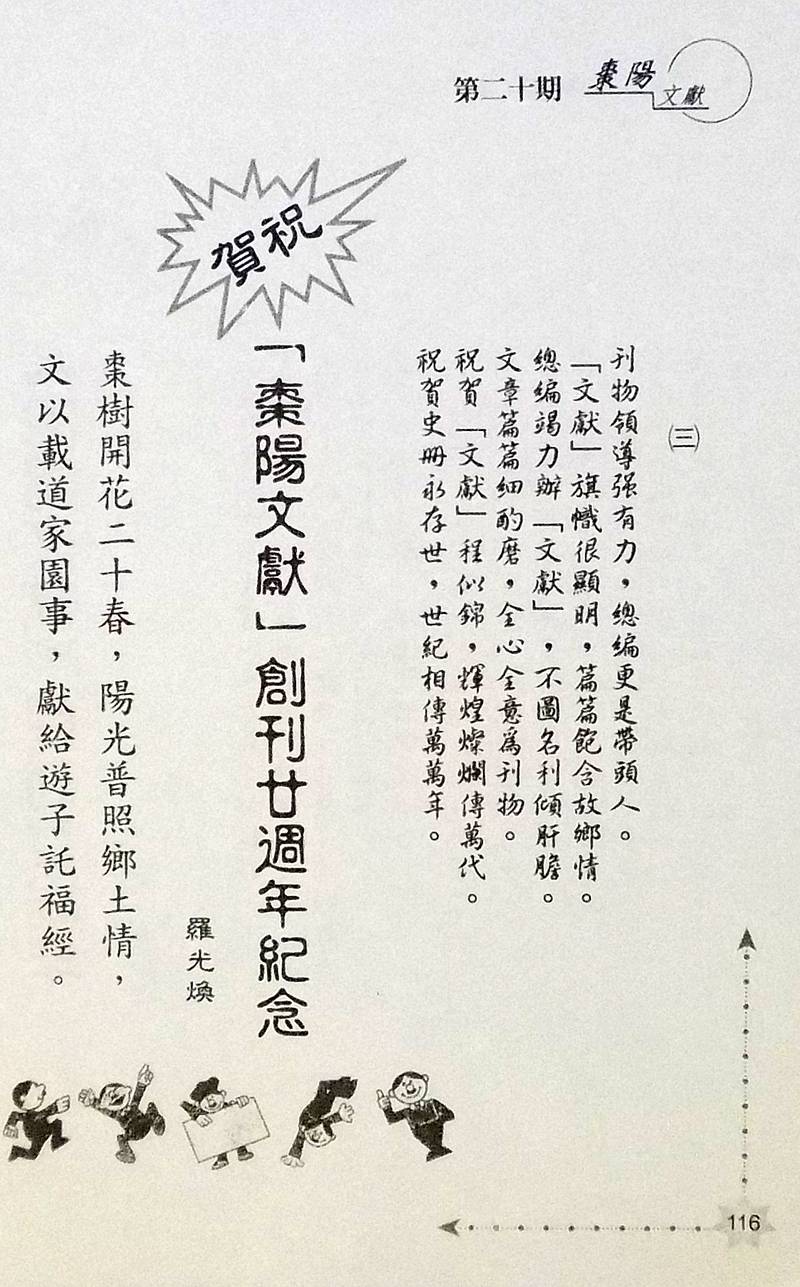 第二十期
棗陽
文獻
㈢
刊物領導强有力，總編更是帶頭人。
「文獻」旗幟很顯明，篇篇飽含故鄉情。
總編竭力辦「文獻」，不圖名利傾肝膽。
文章篇篇細酌磨，全心全意爲刊物。
祝賀「文獻」程似錦，輝煌燦爛傳萬代。
祝賀史册永存世，世紀相傳萬萬年。
祝賀
「棗陽文獻」創刊廿週年紀念
羅光煥
棗樹開花二十春，陽光普照鄉土情，
文以載道家園事，獻給遊子託福經。
116